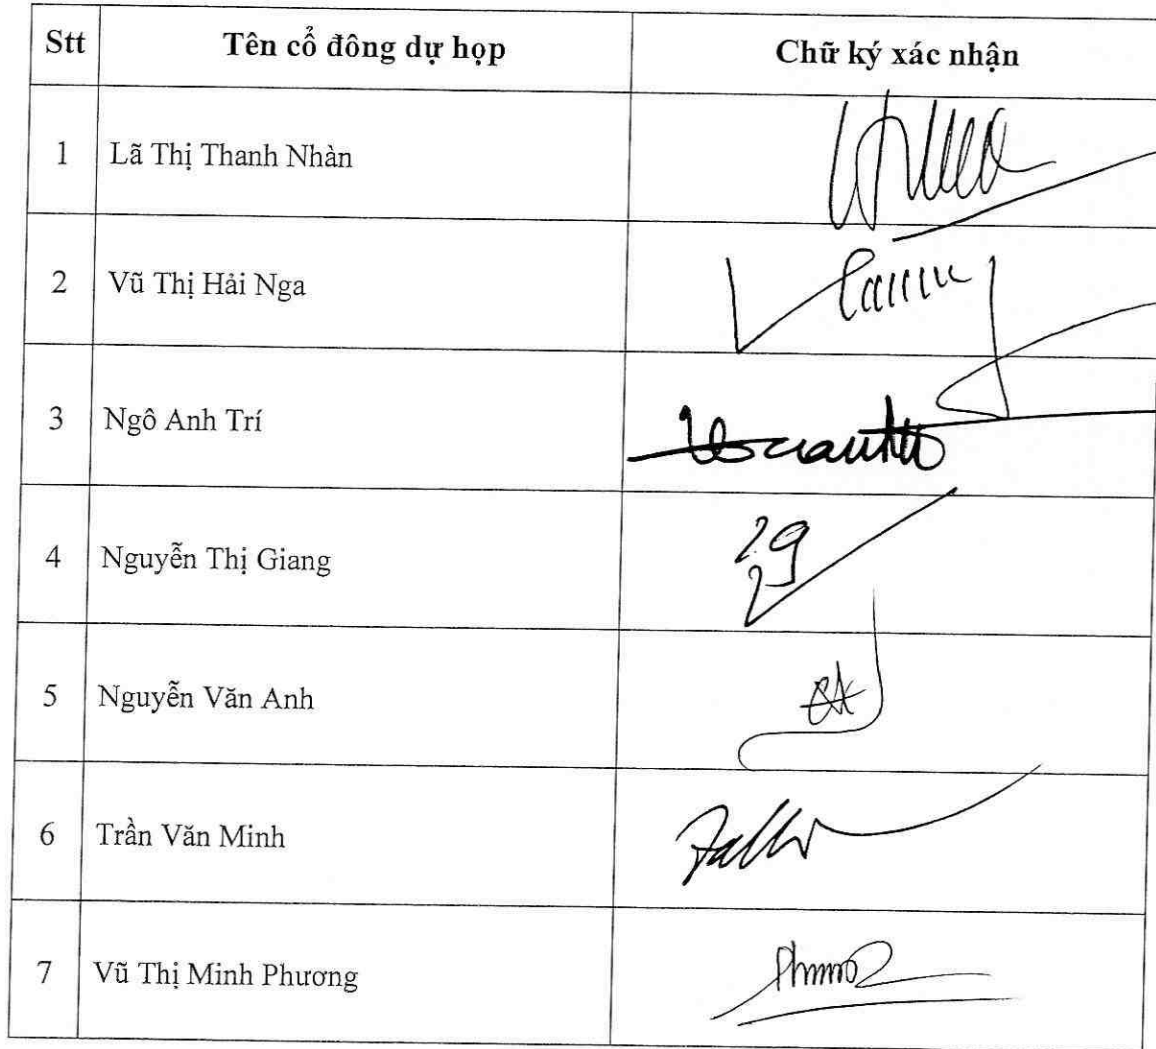 Stt Tên cổ đông dự họp Chữ ký xác nhận
1 Lã Thị Thanh Nhàn
2 Vũ Thị Hải Nga
3 Ngô Anh Trí
4 Nguyễn Thị Giang
5 Nguyễn Văn Anh
6 Trần Văn Minh
7 Vũ Thị Minh Phương